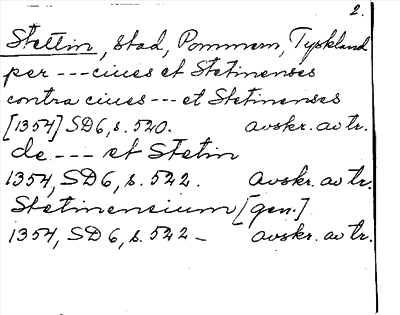 2.
Stettin, stad, Pommern, Tyskland
per --- ciues et Stetinenses
contra ciues --- et Stetinenses
[1354] SD6, s. 520. avskr. av tr.
de --- et Stetin
1354, SD6, s. 522. avskr. av tr.
Stetinensium [gen.]
1354, SD6, s. 522 - avskr. av tr.